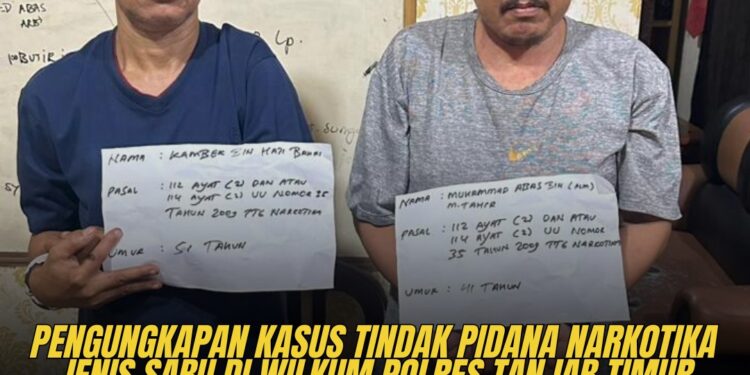 ED ABAS
ARB
Lp.
NAMA : KAMBEK BIN HAJI BAHAI
PASAL : 112 AYAT (2) DAN ATAU
114 AYAT (2) UU NOMOR 35
TAHUN 2009 TTG NARKOTIKA
UMUR : 51 TAHUN
NAMA : MUHAMMAD ABAS BIN (ALM)
M. TAHIR
PASAL : 112 AYAT (2) DAN ATAU
114 AYAT (2) UU NOMOR
35 TAHUN 2009 TTG NARKOTIKA
UMUR : 41 TAHUN
PENGUNGKAPAN KASUS TINDAK PIDANA NARKOTIKA
JENIS SABU DI WILKUM POLRES TANJAB TIMUR